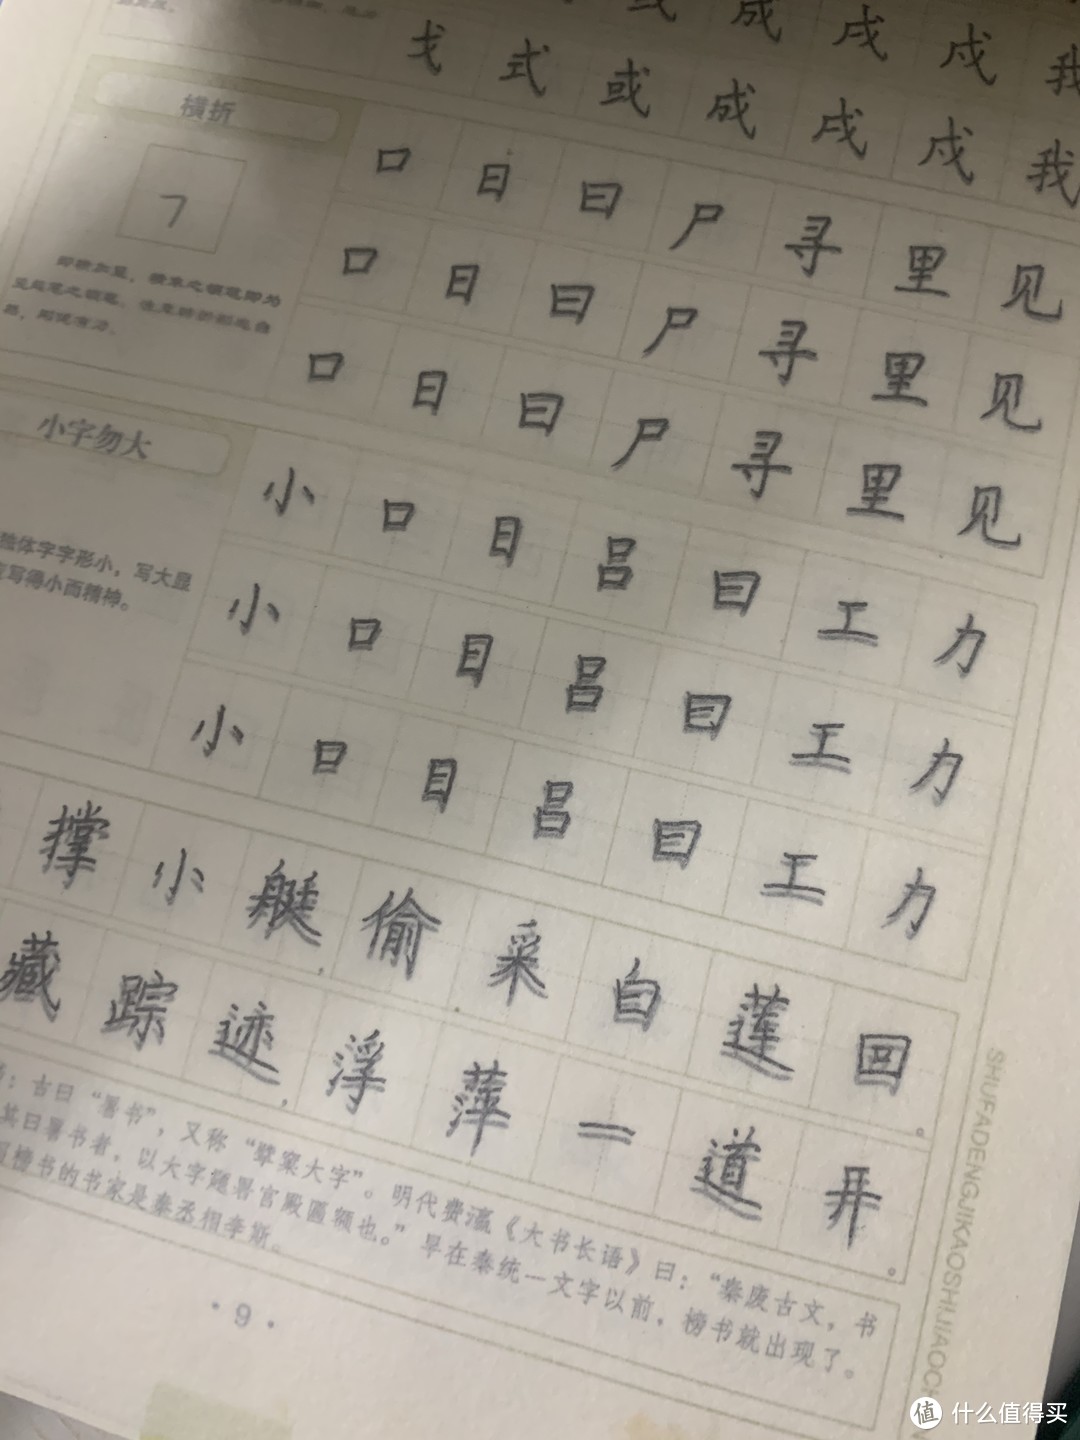 或 成 戌 戍 我
弋 式 或 成 戌 戍 我
横折
口 日 曰 尸 寻 里 见
口 日 曰 尸 寻 里 见
口 日 曰 尸 寻 里 见
小字勿大
独体字字形小，写大显
写得小而精神。
小 口 目 吕 曰 工 力
小 口 目 吕 曰 工 力
小 口 目 吕 曰 工 力
撑小艇，偷采白莲回。
藏踪迹，浮萍一道开。
：古曰“署书”，又称“擘窠大字”。明代费瀛《大书长语》曰：“秦废古文，书
其曰署书者，以大字题署宫殿匾额也。”早在秦统一文字以前，榜书就出现了。
榜书的书家是秦丞相李斯。
·9·
SHUFADENGJIKAOSHIJIAOCH
值 什么值得买